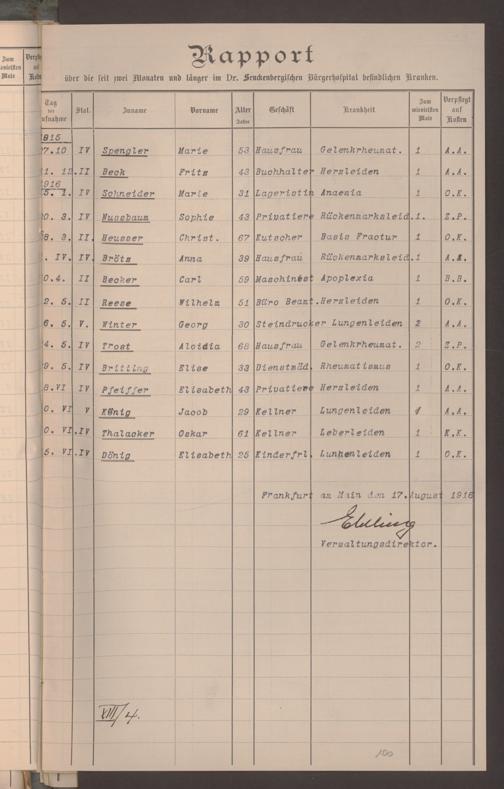 Zum
wievielten
Male
Verpflegt
auf
Kosten
Rapport
über die seit zwei Monaten und länger im Dr. Senckenbergischen Bürgerhospital befindlichen Kranken.
Tag der Aufnahme Stat. Zuname Vorname Alter Jahre Geschäft Krankheit Zum wievielten Male Verpflegt auf Kosten
1915
27.10 IV Spengler Marie 53 Hausfrau Gelenkrheumat. 1 A.A.
11. 12. II Beck Fritz 43 Buchhalter Herzleiden 1 A.A.
1916
5. 1. IV Schneider Marie 31 Lageristin Anaemia 1 O.K.
20. 3. IV Nussbaum Sophie 43 Privatiere Rückenmarksleid. 1. Z.P.
28. 3. II. Heusser Christ. 67 Kutscher Basis Fractur 1 O.K.
. IV. IV. Brötz Anna 39 Hausfrau Rückenmarksleid. 1 A.A.
0.4. II Becker Carl 59 Maschinist Apoplexia 1 B.B.
2. 5. II Reese Wilhelm 51 Büro Beamt. Herzleiden 1 O.K.
6. 5. V. Winter Georg 30 Steindrucker Lungenleiden 2 A.A.
4. 5. IV Trost Aloidia 68 Hausfrau Gelenkrheumat. 2 Z.P.
9. 5. IV Britting Elise 33 Dienstmäd. Rheumatismus 1 O.K.
8.VI IV Pfeiffer Elisabeth 43 Privatiere Herzleiden 1 A.A.
0. VI V König Jacob 29 Kellner Lungenleiden 1 A.A.
0. VI. IV Thalacker Oskar 61 Kellner Leberleiden 1 K.K.
5. VI. IV Dönig Elisabeth 25 Kinderfrl. Lungenleiden 1 O.K.
Frankfurt am Main den 17. August 1916
Verwaltungsdirektor.
XIII/4.
100